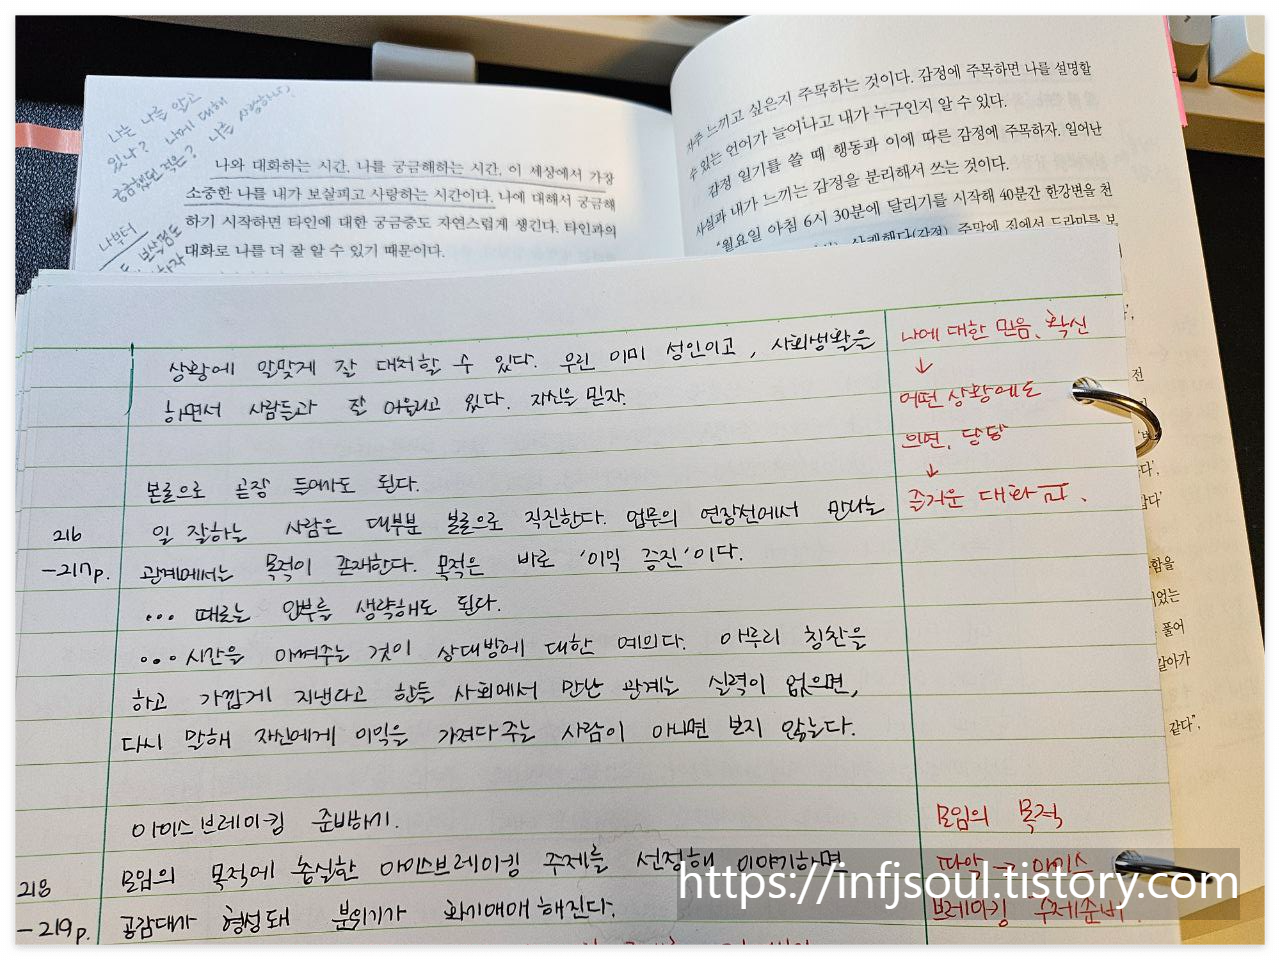 나는 나를 알고
있나? 나에 대해
궁금했던 적은? 나를 사랑하나?
나와 대화하는 시간. 나를 궁금해하는 시간. 이 세상에서 가장
소중한 나를 내가 보살피고 사랑하는 시간이다. 나에 대해서 궁금해
하기 시작하면 타인에 대한 궁금증도 자연스럽게 생긴다. 타인과의
대화로 나를 더 잘 알 수 있기 때문이다.
나부터
느끼고 싶은지 주목하는 것이다. 감정에 주목하면 나를 설명할
수 있는 언어가 늘어나고 내가 누구인지 알 수 있다.
감정 일기를 쓸 때 행동과 이에 따른 감정에 주목하자. 일어난
사실과 내가 느끼는 감정을 분리해서 쓰는 것이다.
“월요일 아침 6시 30분에 달리기를 시작해 40분간 한강변을 천
상쾌했다(감정). 주말에 집에서 드라마를 보
상황에 알맞게 잘 대처할 수 있다. 우린 이미 성인이고, 사회생활을
하면서 사람들과 잘 어울리고 있다. 자신을 믿자.
나에 대한 믿음, 확신
↓
어떤 상황에도
의연, 당당
↓
즐거운 대화 可.
본론으로 곧장 들어가도 된다.
216
-217p.
일 잘하는 사람은 대부분 본론으로 직진한다. 업무의 연장선에서 만나는
관계에서는 목적이 존재한다. 목적은 바로 '이익 증진'이다.
... 때로는 안부를 생략해도 된다.
... 시간을 아껴주는 것이 상대방에 대한 예의다. 아무리 칭찬을
하고 가깝게 지낸다고 한들 사회에서 만난 관계는 실력이 없으면,
다시 말해 자신에게 이익을 가져다주는 사람이 아니면 보지 않는다.
아이스브레이킹 준비하기.
218
-219p.
모임의 목적에 충실한 아이스브레이킹 주제를 선정해 이야기하면
공감대가 형성돼 분위기가 화기애애해진다.
모임의 목적
파악 → 아이스
브레이킹 주제준비.
함을
풀어
같다”.
https://infjsoul.tistory.com